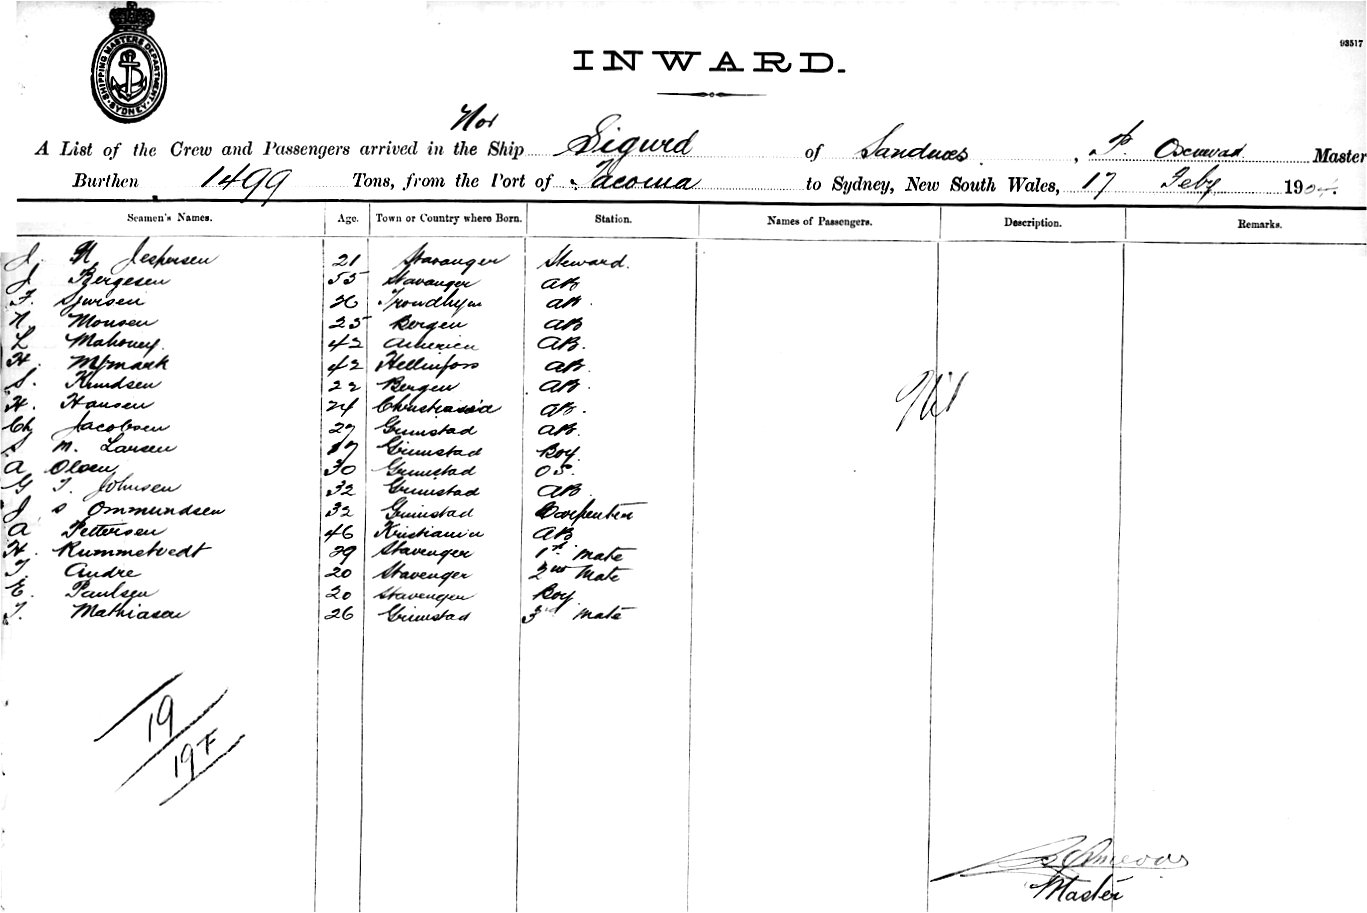 SHIPPING MASTERS DEPARTMENT
SYDNEY
93517
INWARD.
Nor
A List of the Crew and Passengers arrived in the Ship Sigurd of Sandnæs, P. Master
Burthen 1499 Tons, from the Port of Tacoma to Sydney, New South Wales, 17 Feby 190
Seamen's Names. Age. Town or Country where Born. Station. Names of Passengers. Description. Remarks.
J. N Jespersen 21 Stavanger Steward.
J Bergesen 55 Stavanger AB
F. Sjursen 26 Trondhjem AB.
N. Monsen 25 Bergen AB
L Mahoney. 42 America AB.
H. Mymark 42 Hellinfors AB.
S. Knudsen 22 Bergen AB.
H. Hansen 24 Christiania AB.
Ch Jacobsen 27 Grimstad AB.
S M. Larsen 17 Grimstad Boy
A Olsen 30 Grimstad OS.
G T. Johnsen 32 Grimstad AB
J S Ommundsen 32 Grimstad Carpenter
A Pettersen 46 Kristiania AB
H. Rummetvedt 29 Stavenger 1st Mate
T. Andre 20 Stavenger 2nd Mate
E. Paulsen 20 Stavenger Boy
T. Mathiasen 26 Grimstad 3rd Mate
Nil
19
19 F
Master